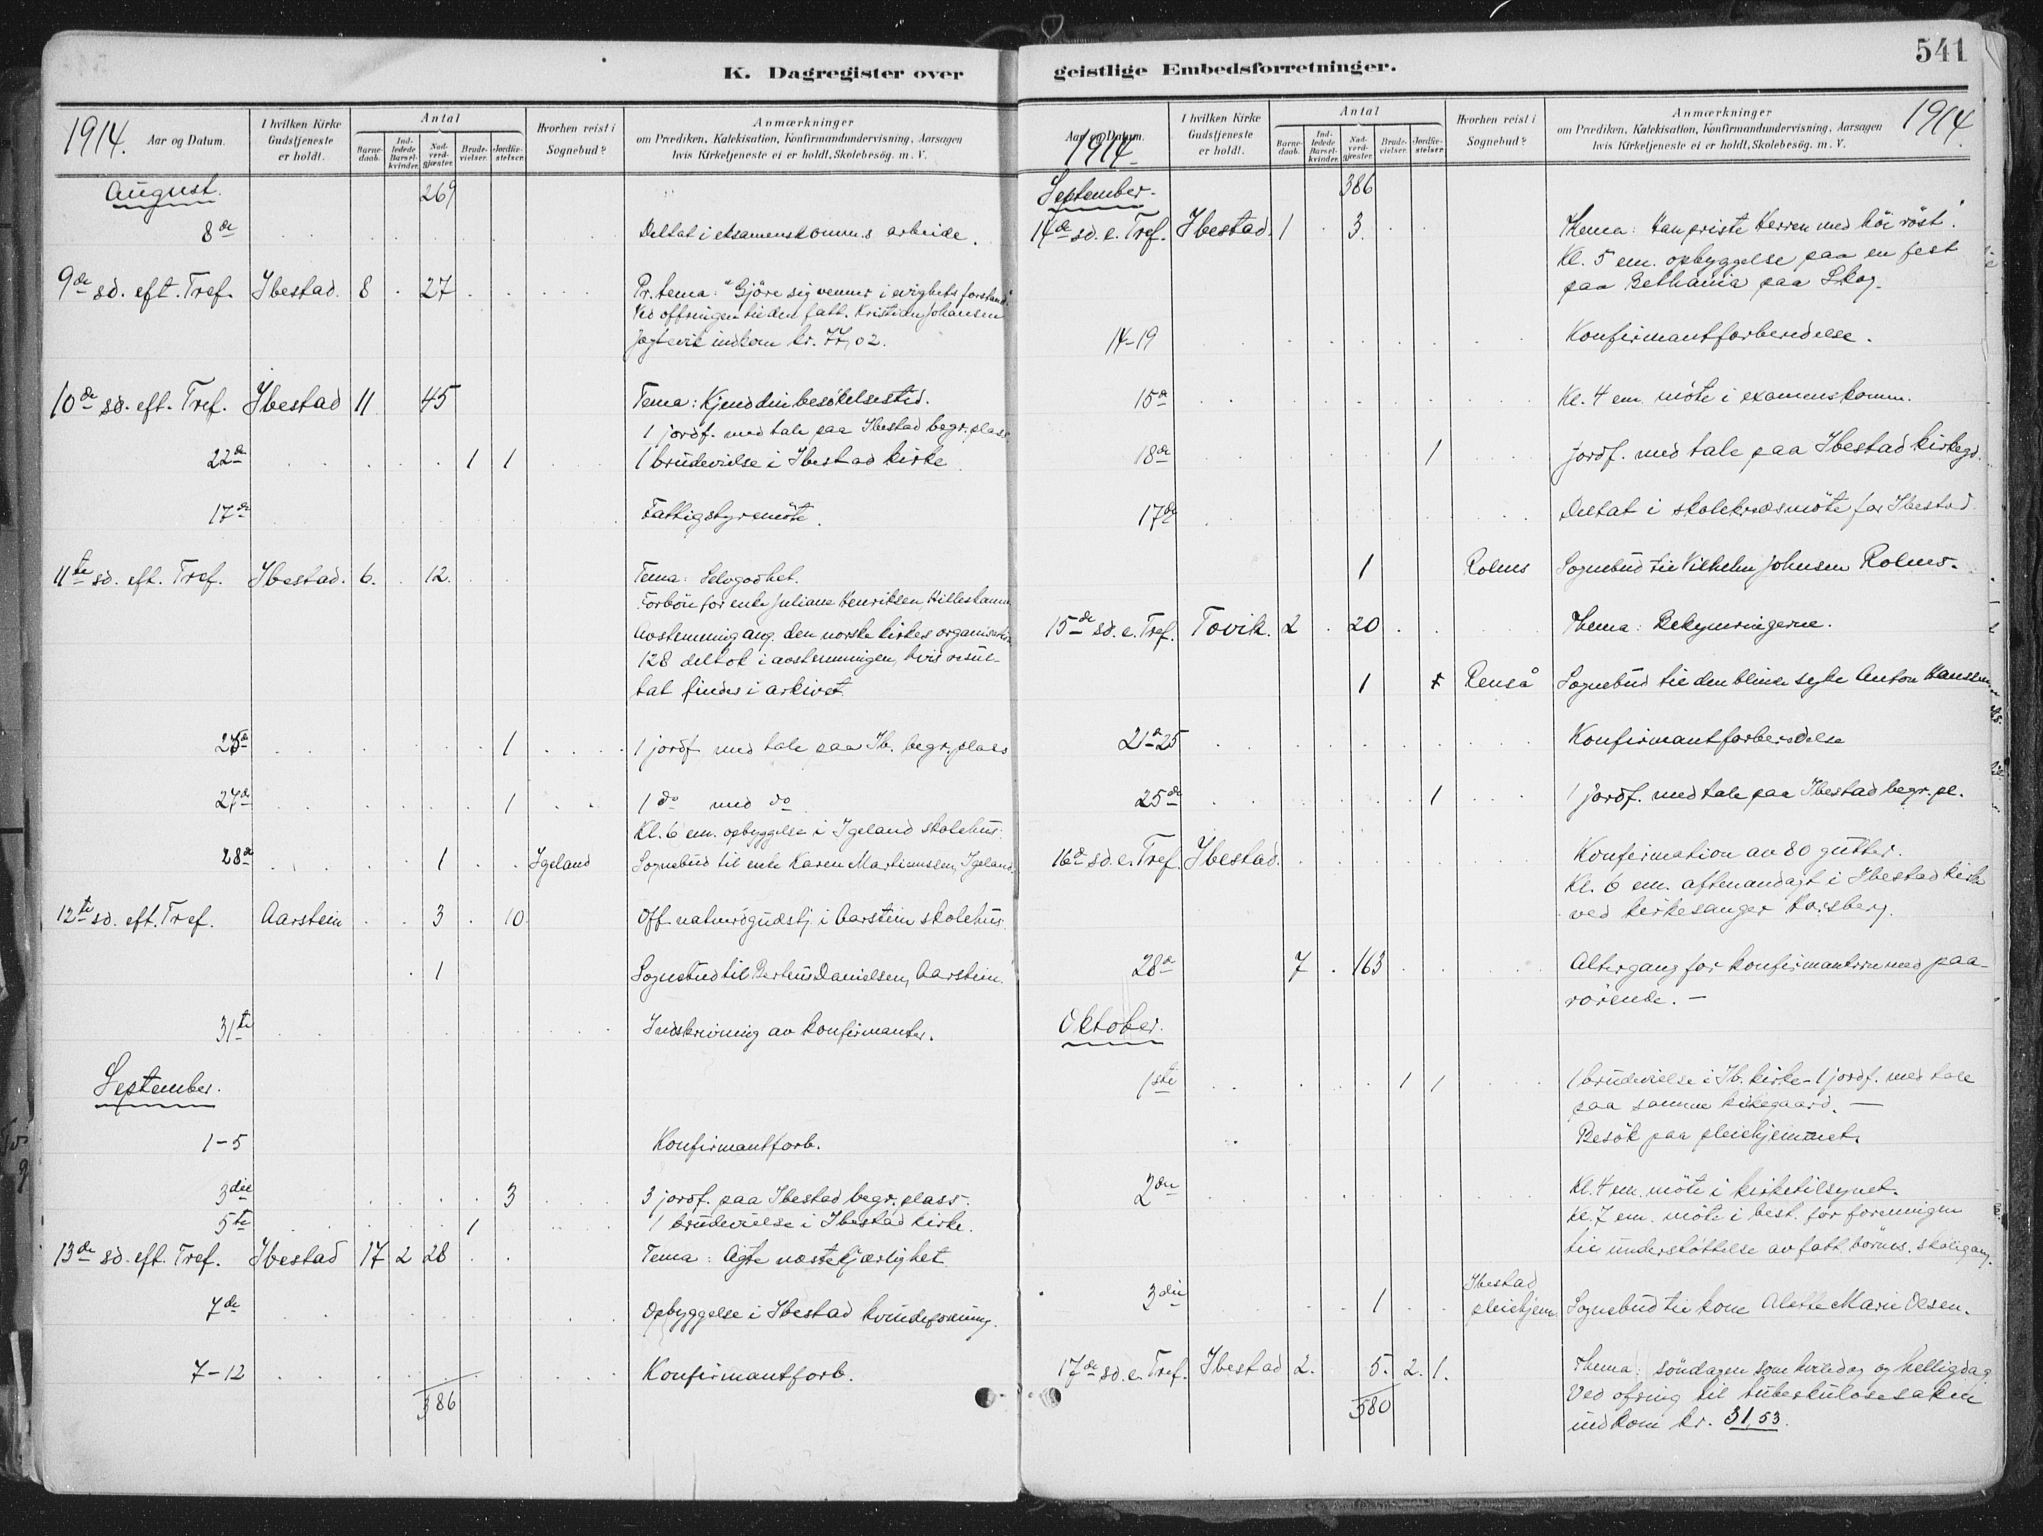 K. Dagregister over
1914.
Aar og Datum.
I hvilken Kirke Gudstjeneste er holdt.
Antal
Barnedaab.
Indledede Barselkvinder.
Nadverdgjester.
Brudevielser.
Jordfæstelser.
Hvorhen reist i Sognebud?
Anmærkninger
om Prædiken, Katekisation, Konfirmandundervisning, Aarsagen
hvis Kirketjeneste ei er holdt, Skolebesøg. m. V.
August. 269
8de Deltat i eksamenskomm.s arbeide.
9de sd. eft. Tref. Ibestad. 8 27 Pr. tema: "Gjöre sig venner i evighets forstand"
Ved offringen til den fatt. Johansen
indkom kr. 77,02.
10de sd. eft. Tref. Ibestad 11 45 Tema: Kjend din besökelsestid.
1 jordf. med tale paa Ibestad begr.plass
22de 1 1 1 brudevielse i Ibestad kirke
17de Fattigstyremöte.
11te sd. eft. Tref. Ibestad. 6. 12. Tema: Selvgodhet.
Forbön for enke Juliane Henriksen,
Avstemning ang. den norske kirkes organisation
128 deltok i avstemningen, hvis resul-
tat findes i arkivet.
25de 1 1 jordf. med tale paa Ib. begr.plass
27de 1 1 do med do
Kl. 6 em. opbyggelse i Igeland skolehus.
28de 1 Igeland Sognebud til enke Karen Martinussen, Igeland.
12te sd. eft. Tref. Aarstein 3 10 Off. natverdgudstj i Aarstein skolehus.
1 Sognebud til Danielsen, Aarstein.
31te Indskrivning av konfirmanter.
September.
1-5 Konfirmantforb.
3die 3 3 jordf. paa Ibestad begr. plass.
5te 1 1 brudevielse i Ibestad kirke.
13de sd. eft. Tref. Ibestad 17 2 28 Tema: Ægte næstekjærlighet.
7de Opbyggelse i Ibestad kvindeforening.
7-12 Konfirmantforb.
386
541
geistlige Embedsforretninger.
Aar og Datum.
1914.
I hvilken Kirke Gudstjeneste er holdt.
Antal
Barnedaab.
Indledede Barselkvinder.
Nadverdgjester.
Brudevielser.
Jordfæstelser.
Hvorhen reist i Sognebud?
Anmærkninger
om Prædiken, Katekisation, Konfirmandundervisning, Aarsagen
hvis Kirketjeneste ei er holdt, Skolebesøg. m. V.
1914.
September. 386
14de sd. e. Tref. Ibestad. 1 3. Thema: Han priste Herren med höi röst.
Kl. 5 em. opbyggelse paa en fest
paa Bethania paa Skog.
14-19 Konfirmantforberedelse.
15de Kl. 4 em. möte i examenskomm.
18de 1 jordf. med tale paa Ibestad kirkegd.
17de Deltat i skolekredsmöte for Ibestad.
1 Rolnes Sognebud til Vilhelm Johnsen Rolnes.
15de sd. e. Tref. Tovik. 2 20 Thema: Bekymringerne.
1 Renså Sognebud til den blinde syke Anton Hanssen
21de-25 Konfirmantforberedelse
25de 1 1 jordf. med tale paa Ibestad begr. pl.
16de sd. e. Tref. Ibestad. Konfirmation av 80 gutter.
Kl. 6 em. aftenandagt i Ibestad kirke
ved kirkesanger
28de 7 163 Altergang for konfirmanterne med paa-
rörende. —
Oktober.
1ste 1 1 1 brudevielse i Ib. kirke - 1 jordf. med tale
paa samme kirkegaard. —
Besök paa pleiehjemmet.
2den Kl. 4 em. möte i kirketilsynet.
Kl. 7 em. möte i best. for foreningen
til understöttelse av fatt. börns. skolegang.
3die 1 Ibestad pleiehjem Sognebud til kone Alette Marie Olsen.
17de sd. e. Tref. Ibestad 2. 5. 2. 1. Thema: söndagen som hviledag og helligdag.
Ved ofring til tuberkulosesaken
indkom kr. 31,53.
580